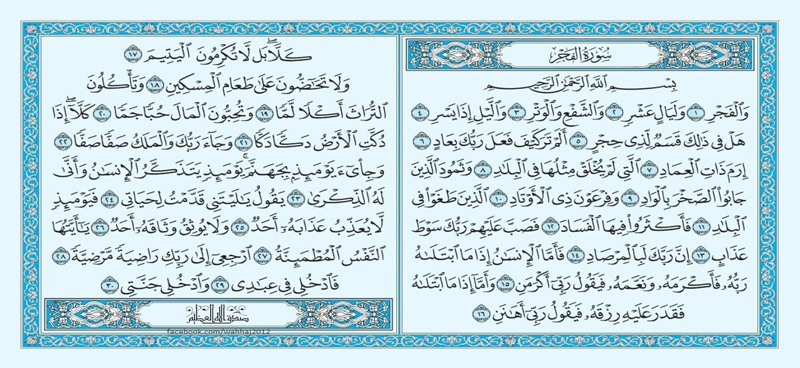 سُورَةُ الفَجۡرِ
بِسۡمِ ٱللَّهِ ٱلرَّحۡمَٰنِ ٱلرَّحِيمِ
وَٱلۡفَجۡرِ ١ وَلَيَالٍ عَشۡرٖ ٢ وَٱلشَّفۡعِ وَٱلۡوَتۡرِ ٣ وَٱلَّيۡلِ إِذَا يَسۡرِ ٤
هَلۡ فِي ذَٰلِكَ قَسَمٞ لِّذِي حِجۡرٍ ٥ أَلَمۡ تَرَ كَيۡفَ فَعَلَ رَبُّكَ بِعَادٍ ٦
إِرَمَ ذَاتِ ٱلۡعِمَادِ ٧ ٱلَّتِي لَمۡ يُخۡلَقۡ مِثۡلُهَا فِي ٱلۡبِلَٰدِ ٨ وَثَمُودَ ٱلَّذِينَ
جَابُواْ ٱلصَّخۡرَ بِٱلۡوَادِ ٩ وَفِرۡعَوۡنَ ذِي ٱلۡأَوۡتَادِ ١٠ ٱلَّذِينَ طَغَوۡاْ فِي
ٱلۡبِلَٰدِ ١١ فَأَكۡثَرُواْ فِيهَا ٱلۡفَسَادَ ١٢ فَصَبَّ عَلَيۡهِمۡ رَبُّكَ سَوۡطَ
عَذَابٍ ١٣ إِنَّ رَبَّكَ لَبِٱلۡمِرۡصَادِ ١٤ فَأَمَّا ٱلۡإِنسَٰنُ إِذَا مَا ٱبۡتَلَىٰهُ
رَبُّهُۥ فَأَكۡرَمَهُۥ وَنَعَّمَهُۥ فَيَقُولُ رَبِّيٓ أَكۡرَمَنِ ١٥ وَأَمَّآ إِذَا مَا ٱبۡتَلَىٰهُ
فَقَدَرَ عَلَيۡهِ رِزۡقَهُۥ فَيَقُولُ رَبِّيٓ أَهَٰنَنِ ١٦
كَلَّاۖ بَل لَّا تُكۡرِمُونَ ٱلۡيَتِيمَ ١٧
وَلَا تَحَٰٓضُّونَ عَلَىٰ طَعَامِ ٱلۡمِسۡكِينِ ١٨ وَتَأۡكُلُونَ
ٱلتُّرَاثَ أَكۡلٗا لَّمّٗا ١٩ وَتُحِبُّونَ ٱلۡمَالَ حُبّٗا جَمّٗا ٢٠ كَلَّآۖ إِذَا
دُكَّتِ ٱلۡأَرۡضُ دَكّٗا دَكّٗا ٢١ وَجَآءَ رَبُّكَ وَٱلۡمَلَكُ صَفّٗا صَفّٗا ٢٢
وَجِاْيٓءَ يَوۡمَئِذِۭ بِجَهَنَّمَۚ يَوۡمَئِذٖ يَتَذَكَّرُ ٱلۡإِنسَٰنُ وَأَنَّىٰ
لَهُ ٱلذِّكۡرَىٰ ٢٣ يَقُولُ يَٰلَيۡتَنِي قَدَّمۡتُ لِحَيَاتِي ٢٤ فَيَوۡمَئِذٖ
لَّا يُعَذِّبُ عَذَابَهُۥٓ أَحَدٞ ٢٥ وَلَا يُوثِقُ وَثَاقَهُۥٓ أَحَدٞ ٢٦ يَٰٓأَيَّتُهَا
ٱلنَّفۡسُ ٱلۡمُطۡمَئِنَّةُ ٢٧ ٱرۡجِعِيٓ إِلَىٰ رَبِّكِ رَاضِيَةٗ مَّرۡضِيَّةٗ ٢٨
فَٱدۡخُلِي فِي عِبَٰدِي ٢٩ وَٱدۡخُلِي جَنَّتِي ٣٠
صدق الله العظيم
facebook.com/wahhaj2012